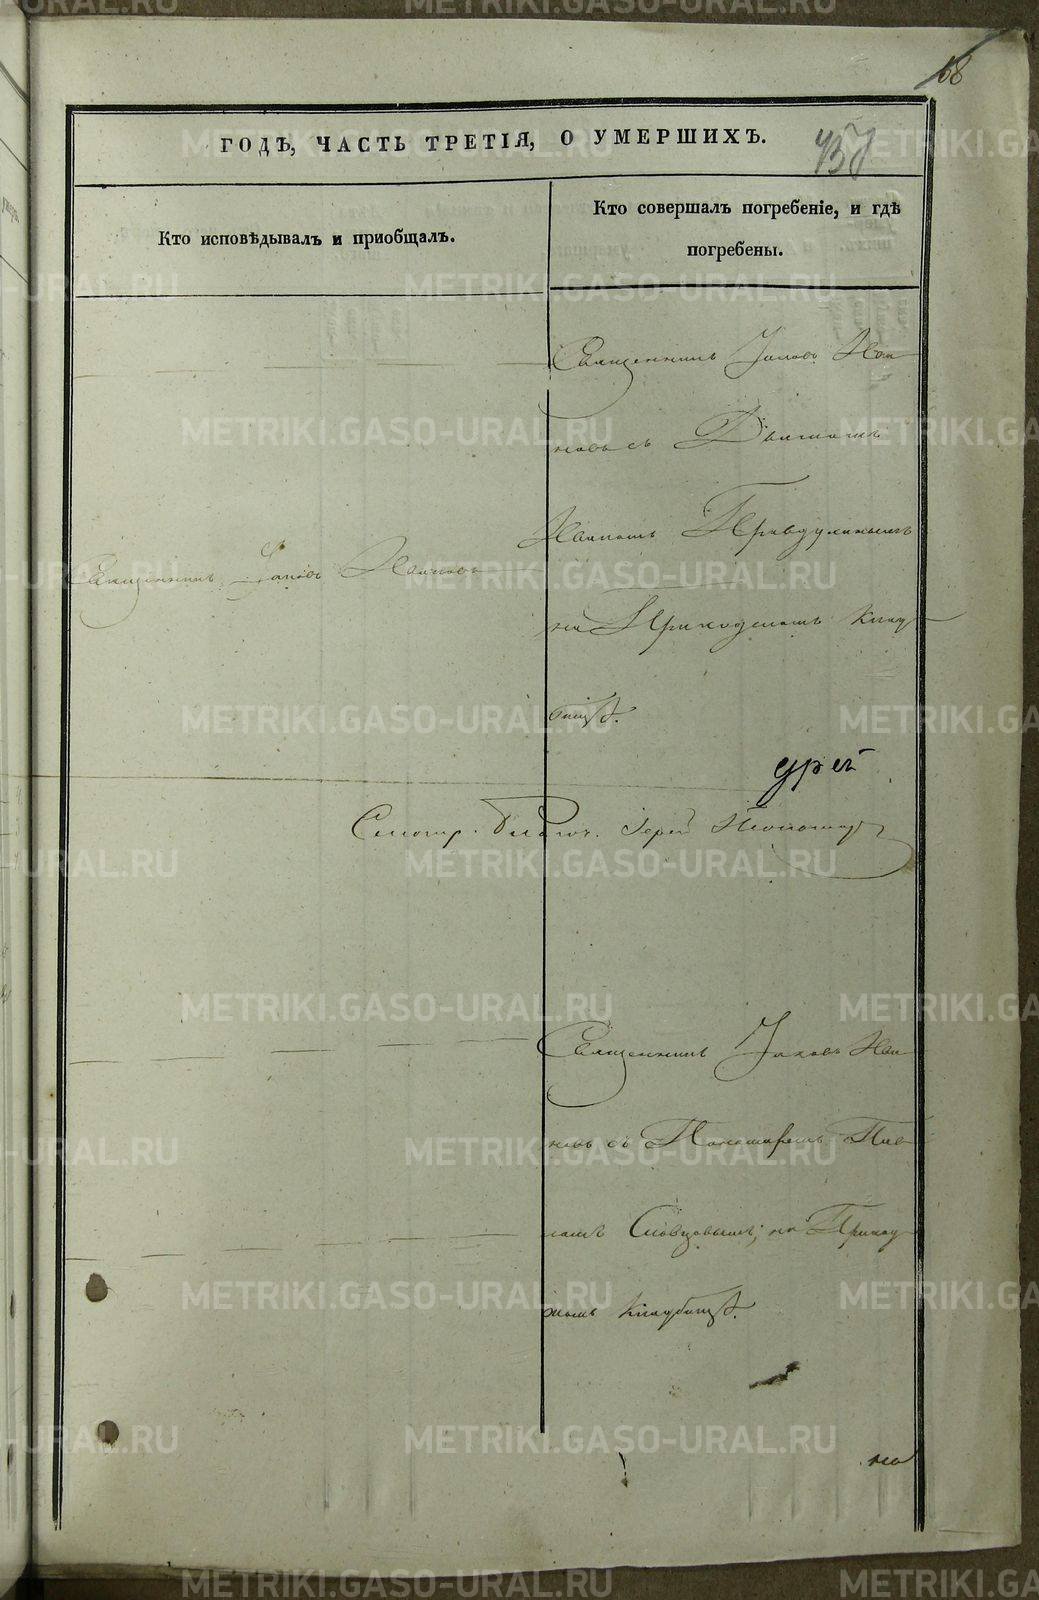 68
437
ГОДѢ, ЧАСТЬ ТРЕТІЯ, О УМЕРШИХЪ.
Кто исповѣдывалъ и приобщалъ.
Кто совершалъ погребеніе, и гдѣ
погребены.
Священникъ Іаковъ Ива
новъ съ
Иваномъ Правдухинымъ
Священникъ Іаковъ Ивановъ
на Приходскомъ клад
бищѣ.
Смотр. Благоч. Іерей
Священникъ Іаковъ Ива
новъ съ Пономаремъ Пав
ломъ Словцовымъ, на Приход
скомъ кладбищѣ.
на
METRIKI.GASO-URAL.RU